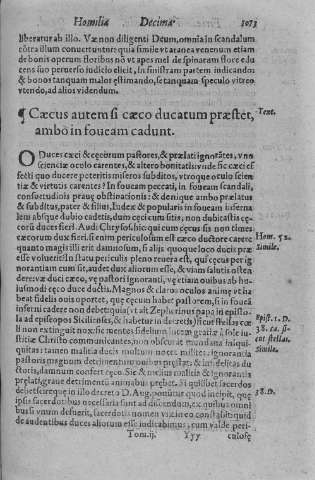 Homilia Decima 1073
liberatur ab illo. Væ non diligenti Deum, omnia in scandalum
cōtra illum conuertuntur: quia simile vt aranea venenum etiam
de bonis operum floribus nō vt apes mel de spinarum
cens suo peruerso iudicio elicit, in sinistram partem indicando:&
bonos tanquam malos estimando, se tanquam speculo vitreo
vtendo, ad alios videndum.
¶ Cæcus autem si cæco ducatum præstet, Text.
ambo in foueam cadunt.
O Duces cæci & cęcorum pastores, & prælati ignorātes, vno
scientiæ oculo carentes, & altero bonitatis: vnde sic cæci ef
fecti quo ducere poteritis miseros subditos, vtroque oculo scien
tiæ & virtutis carentes? In foueam peccati, in foueam scandali,
consuetudinis prauę obstinationis: & denique ambo prælatus
& subditus, pater & filius, Iudex & popularis in foueam inferna
lem absque dubio cadetis, dum cęci cum sitis, non dubitastis cę-
corū duces fieri. Audi Chrysost. hic qui cum cęcus sis non times
cæcorum dux fieri. si enim periculosum est cæco ductore carere Hom. 52.
quanto magis illi erit damnosum, si alijs quoque loco ducis præ Simile.
esse voluerit? In statu periculi pleno reuera est, qui cęcus per ig
norantiam cum sit, audet dux aliorum esse, & viam salutis osten
dere: væ duci cæco, vę pastori ignoranti, vę etiam ouibus ab hu-
iusmodi cęco duce ductis. Magnos & claros oculos
beat fidelis ouis oportet, que cęcum habet pastorem, si in foueā
inferni cadere non debet: quia (vt ait Zephirinus papa in episto-
la ad episcopos Sicilienses, & habetur in decretis) sicut stellas cæ Epist. 1. D.
li non extinguit nox: sic mentes fidelium 38. ca. si-
stitiæ Christo communicantes, non obscurat mundana iniqui- cut stellas.
quitas: tamen malitia ducis multum nocet militi, ignorantia Simile.
pastoris magnum detrimentum ouibus pręstat, & infidelitas du
ctoris, damnum confert cęco. Sic & malitia & ignorantia
pręlati, graue detrimentū animabus pręhet. Si quislibet sacerdos
debet scire que in illo decreto D. Aug. ponitur quod incipit, quę 38. D.
ipsis sacerdotibus necessaria sunt ad discendum, ex quibus omni
bus vnum defuerit, sacerdotis nomen vix in eo constabit: quid
de audentibus duces aliorum esse iudicabimus, cum valde peri-
Tom. ij. Yyy culosę